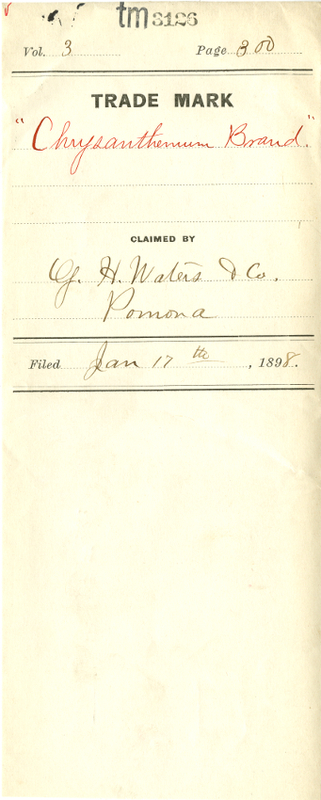 tm 3126
Vol. 3 Page 300
TRADE MARK
"Chrysanthemum Brand."
CLAIMED BY
G. H. Waters & Co.
Pomona
Filed Jan 17th, 1898.